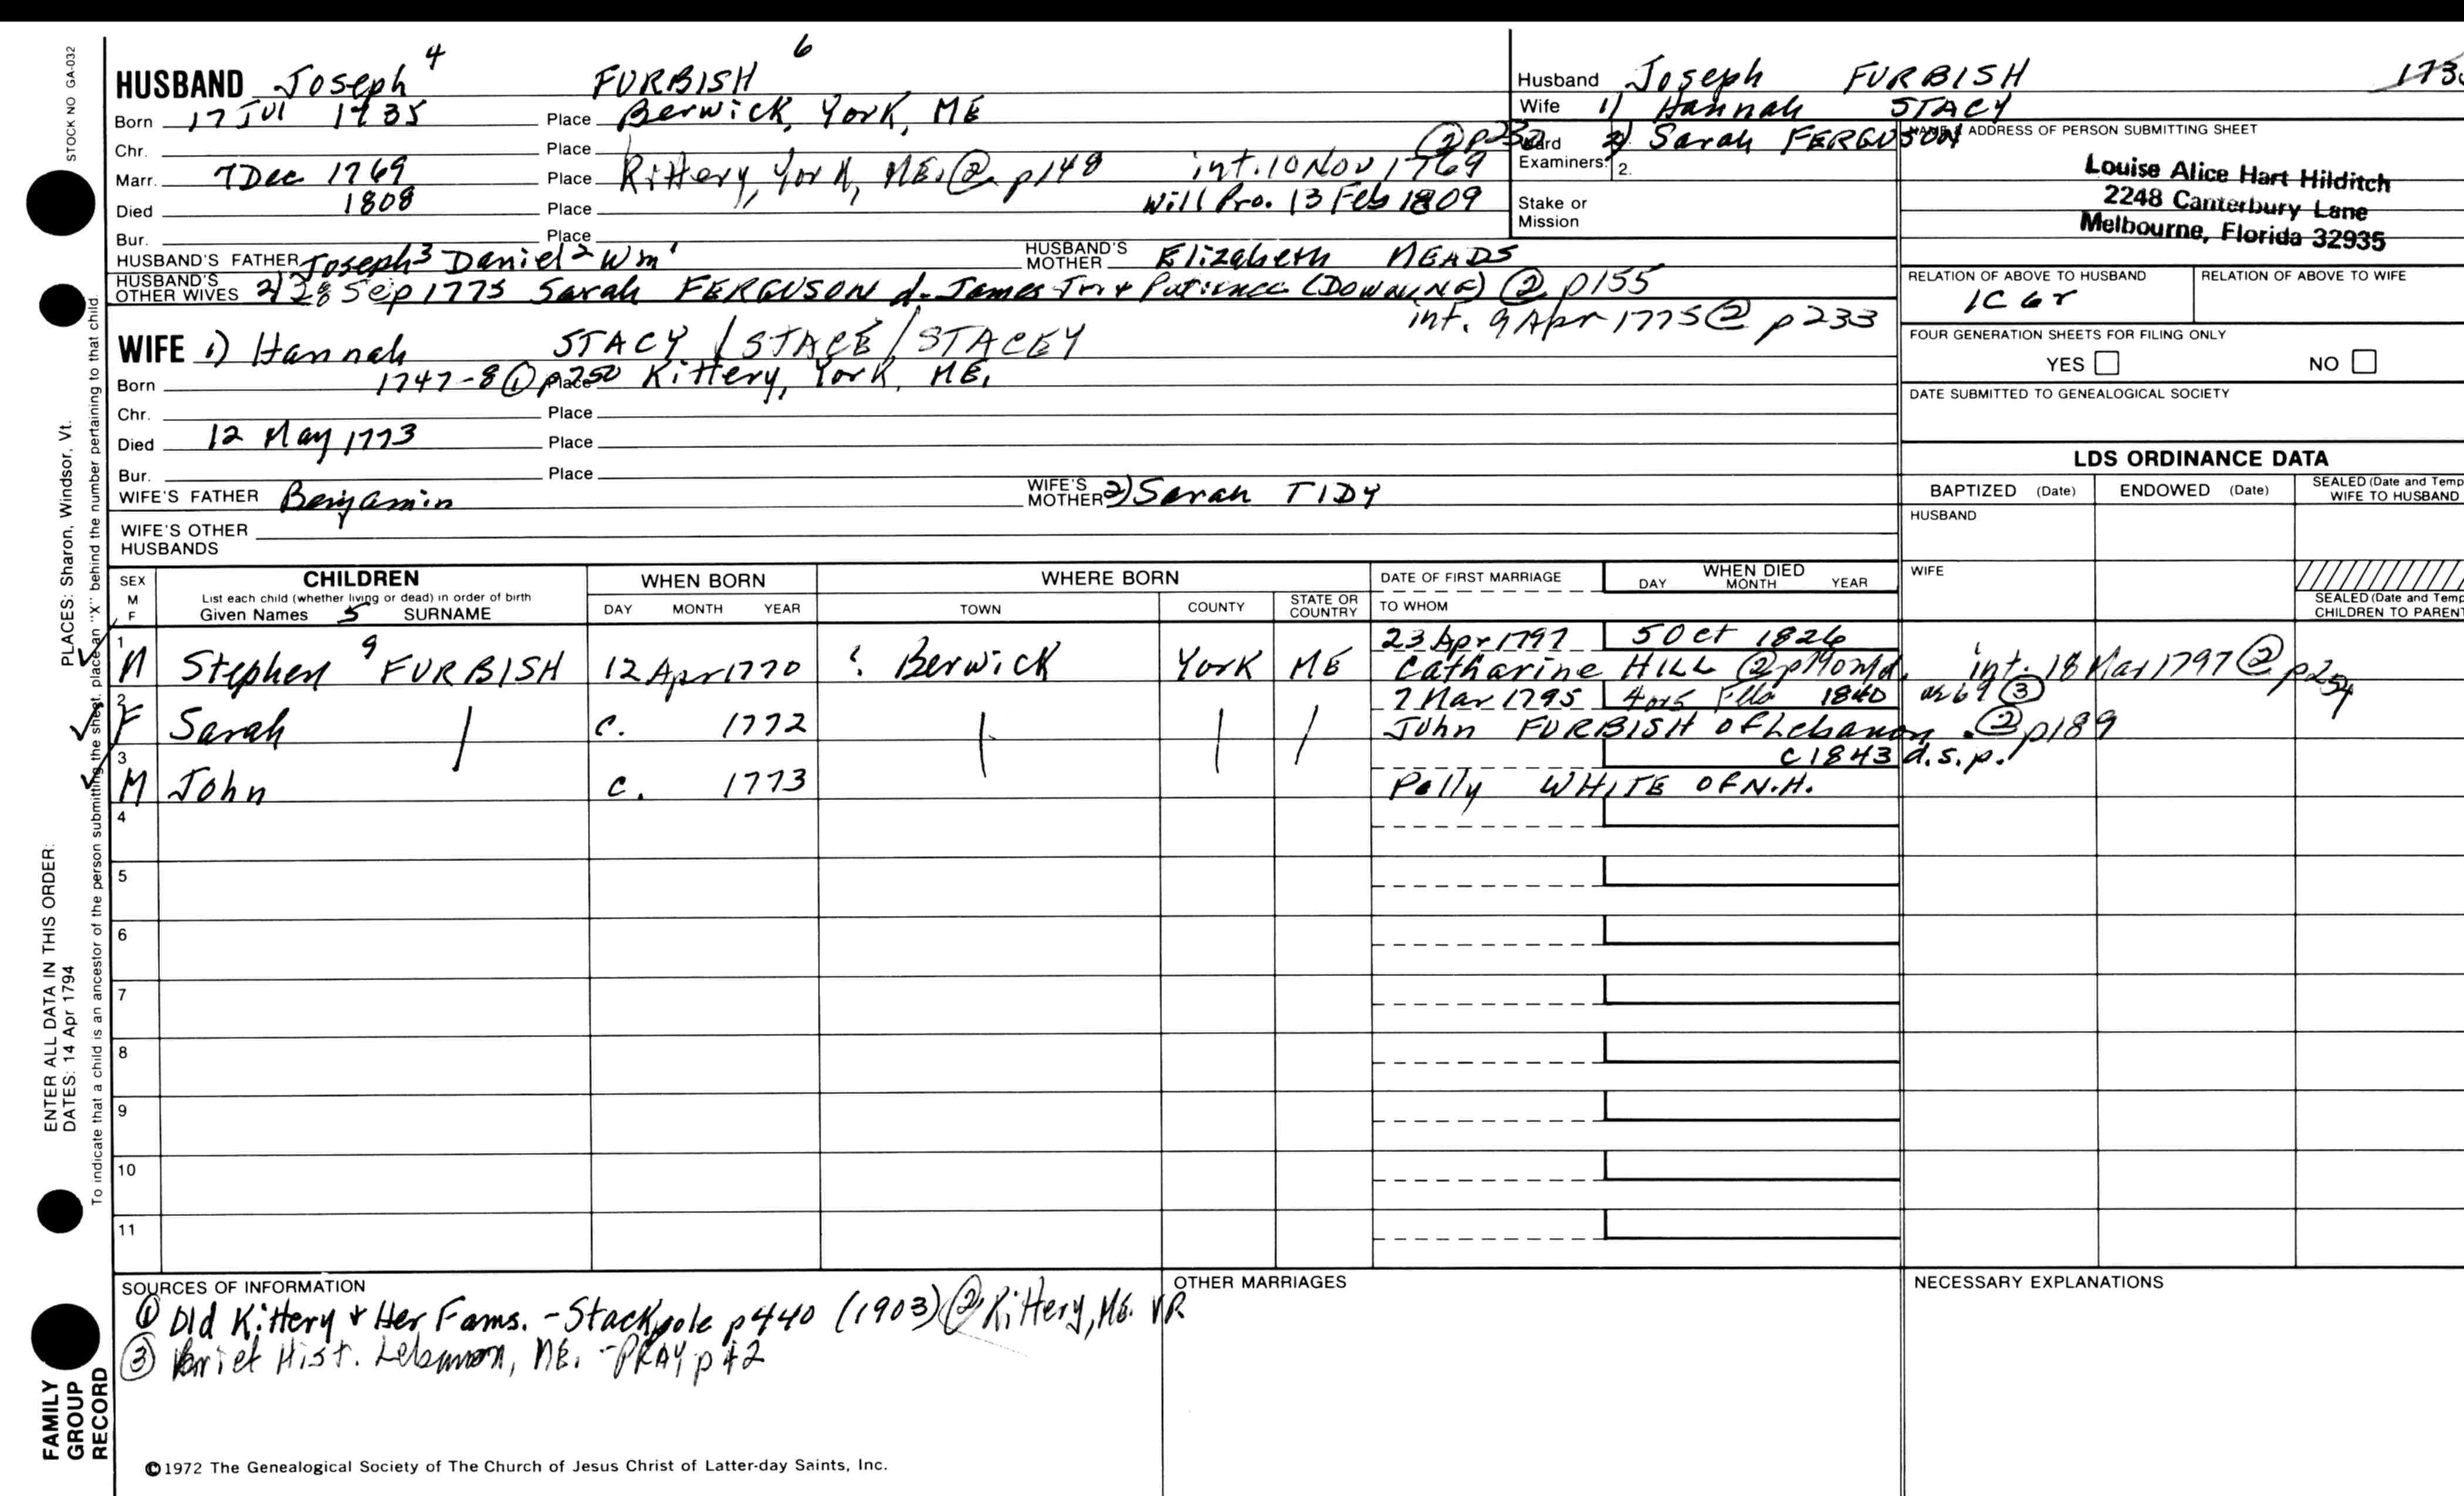 STOCK NO GA-032
HUSBAND Joseph 4 FURBISH 6
Born 17 Jul 1735 Place Berwick, York, ME
Chr. Place
Marr. 7 Dec 1769 Place Kittery, York, ME. ② p148 int. 10 Nov 1769 ② p232
Died 1808 Place Will Pro. 13 Feb 1809
Bur. Place
HUSBAND'S FATHER Joseph³ Daniel² Wm¹ HUSBAND'S MOTHER Elizabeth MEADS
HUSBAND'S OTHER WIVES 2) 28 Sep 1775 Sarah FERGUSON d. James Patience (DOWNING) ② p155
int. 9 Apr 1775 ② p233
WIFE 1) Hannah STACY / STACE / STACEY
Born 1747-8 ① p250 Place Kittery, York, ME.
Chr. Place
Died 12 May 1773 Place
Bur. Place
WIFE'S FATHER Benjamin WIFE'S MOTHER 2) Sarah TIDY
WIFE'S OTHER HUSBANDS
Husband Joseph FURBISH 173
Wife 1) Hannah STACY
Ward 2) Sarah FERGUSON
Examiners: 2.
Stake or Mission
NAME & ADDRESS OF PERSON SUBMITTING SHEET
Louise Alice Hart Hilditch
2248 Canterbury Lane
Melbourne, Florida 32935
RELATION OF ABOVE TO HUSBAND RELATION OF ABOVE TO WIFE
1C6r
FOUR GENERATION SHEETS FOR FILING ONLY
YES NO
DATE SUBMITTED TO GENEALOGICAL SOCIETY
LDS ORDINANCE DATA
BAPTIZED (Date) ENDOWED (Date) SEALED (Date and Temp
WIFE TO HUSBAND
HUSBAND
WIFE
SEALED (Date and Temp
CHILDREN TO PARENT
SEX M F
CHILDREN
List each child (whether living or dead) in order of birth
Given Names 5 SURNAME
WHEN BORN
DAY MONTH YEAR
WHERE BORN
TOWN COUNTY STATE OR COUNTRY
DATE OF FIRST MARRIAGE
TO WHOM
WHEN DIED
DAY MONTH YEAR
1 23 Apr 1797 5 Oct 1826
M Stephen 9 FURBISH 12 Apr 1770 : Berwick York ME Catharine HILL ② p190 int. 18 Mar 1797 ② p254
2 7 Mar 1795 4 or 5 1840 ae 69 ③
F Sarah c. 1772 John FURBISH of Lebanon ② p189
3 c 1843 d.s.p.
M John c. 1773 Polly WHITE OF N.H.
4
5
6
7
8
9
10
11
SOURCES OF INFORMATION
① Old Kittery & Her Fams. - Stackpole p440 (1903) ② Kittery, ME. VR
③ Brief Hist. Lebanon, ME. - PRAY p42
OTHER MARRIAGES
NECESSARY EXPLANATIONS
©1972 The Genealogical Society of The Church of Jesus Christ of Latter-day Saints, Inc.
PLACES: Sharon, Windsor, Vt.
To indicate that a child is an ancestor of the person submitting the sheet, place an "X" behind the number pertaining to that child.
ENTER ALL DATA IN THIS ORDER:
DATES: 14 Apr 1794
FAMILY
GROUP
RECORD